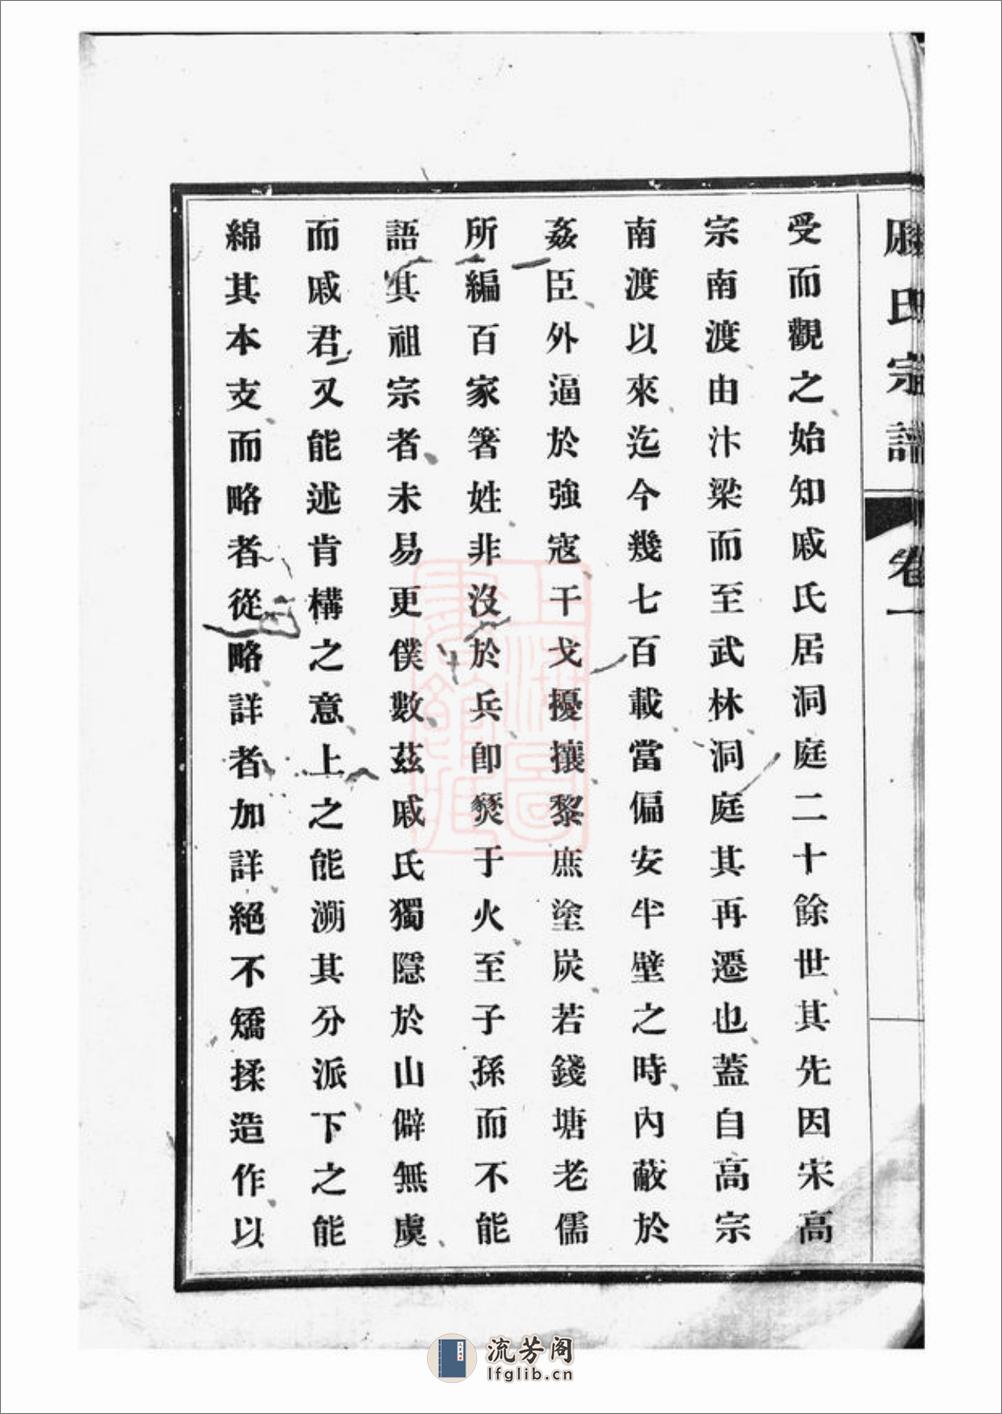 戚氏宗譜 卷一
受而觀之始知戚氏居洞庭二十餘世其先因宋高
宗南渡由汴梁而至武林洞庭其再遷也蓋自高宗
南渡以來迄今幾七百載當偏安半壁之時內蔽於
姦臣外逼於強寇干戈擾攘黎庶塗炭若錢塘老儒
所編百家箸姓非沒於兵即燹于火至子孫而不能
語其祖宗者未易更僕數茲戚氏獨隱於山僻無虞
而戚君又能述肯構之意上之能溯其分派下之能
綿其本支而略者從略詳者加詳絕不矯揉造作以
上海圖
書館藏
流芳阁
lfglib.cn